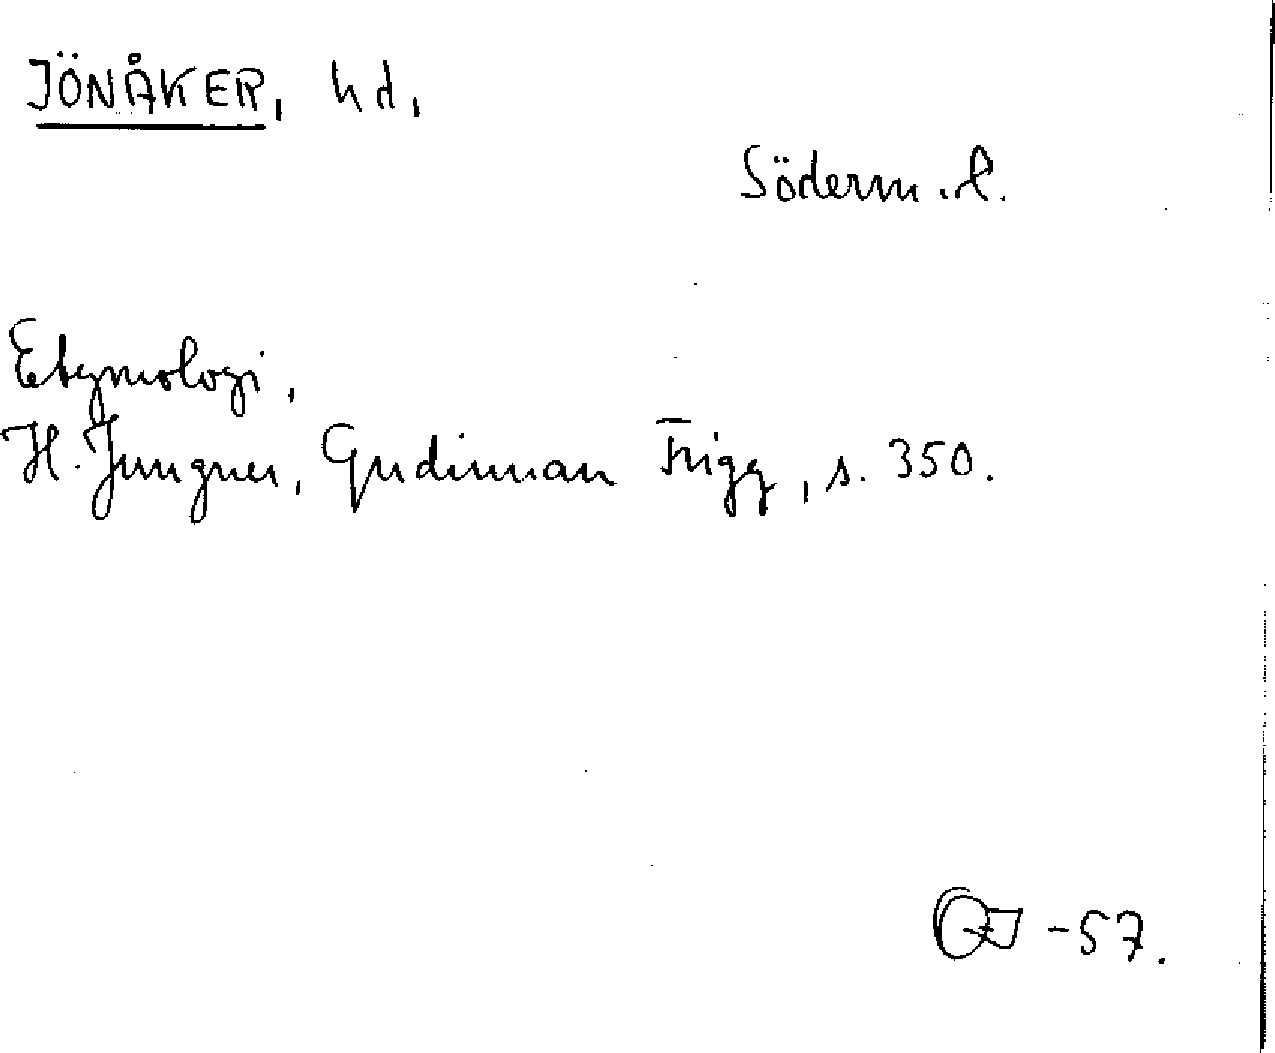 JÖNÅKER, hd,
Söderm.l.
Etymologi,
H. Jungner, Gudinnan Frigg, s. 350.
-57.